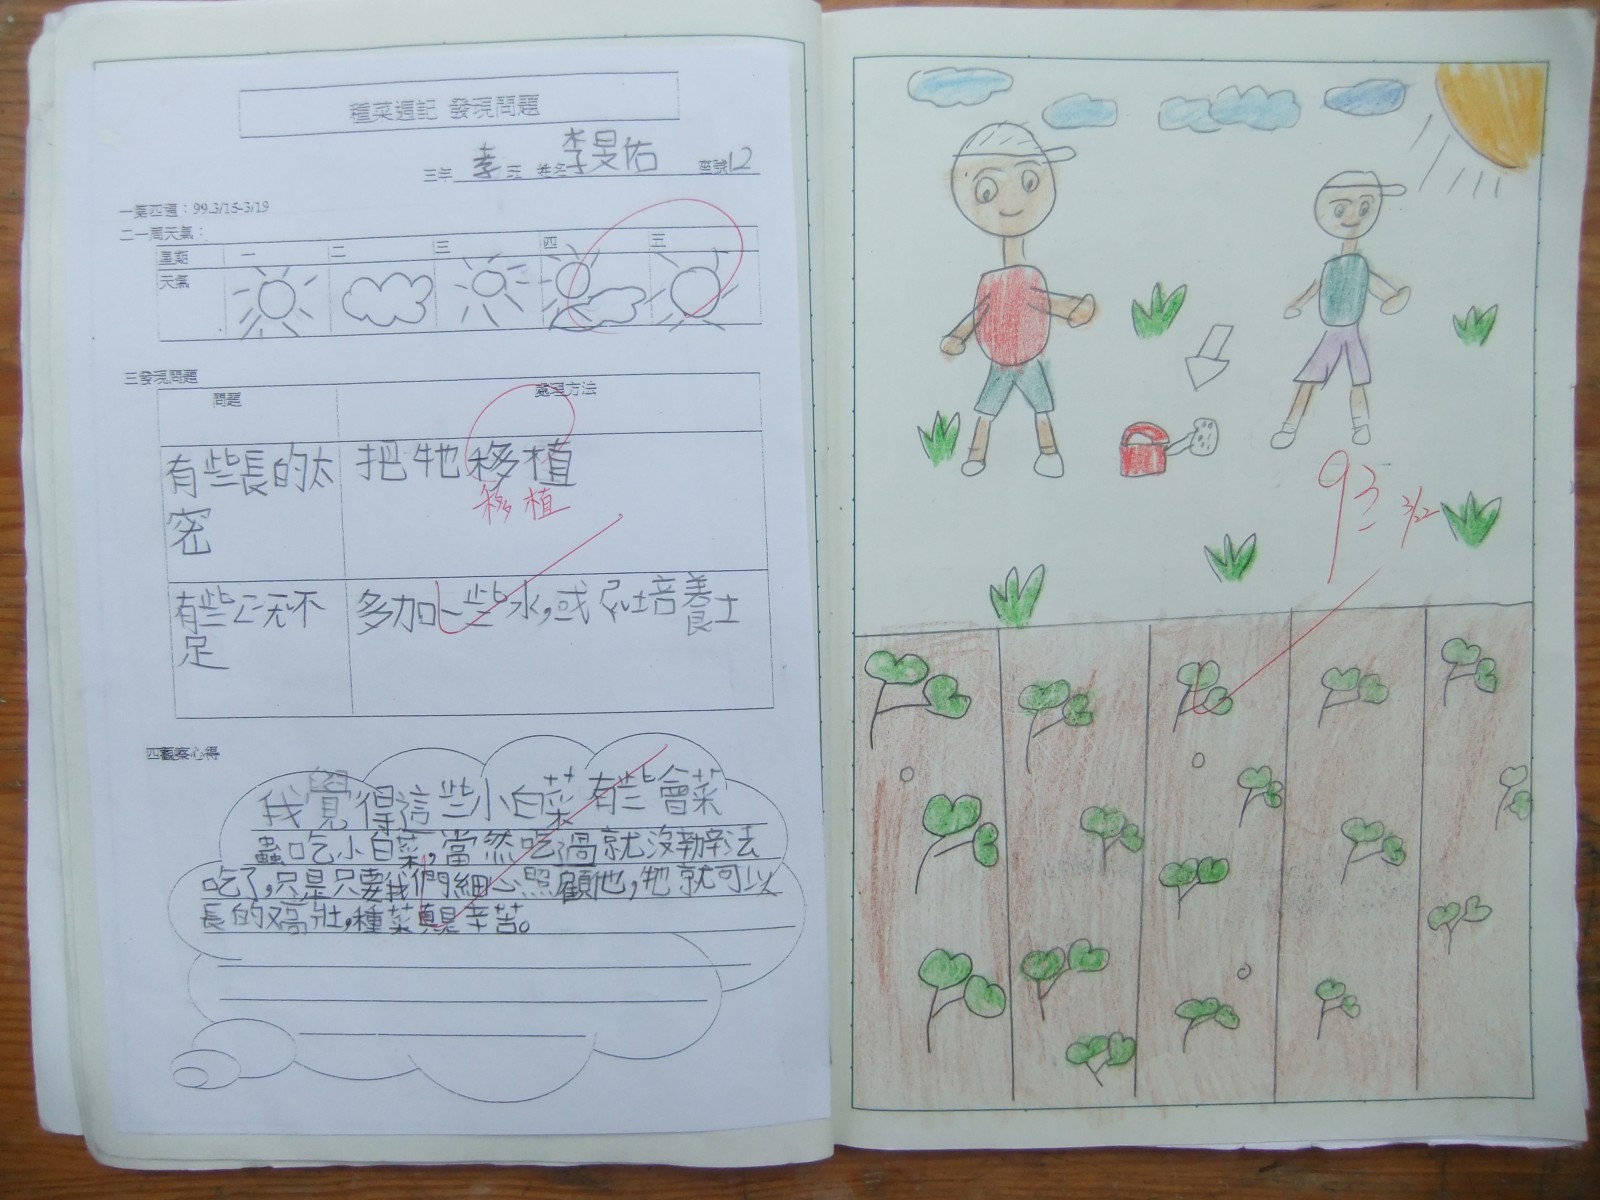 種菜週記 發現問題
三年 孝 班 姓名 李旻佑 座號 12
一第四週：99.3/15-3/19
二一周天氣：
星期 一 二 三 四 五
天氣
三發現問題
問題 處理方法
有些長的太
密
把牠移植
移植
有些
不
足
多加一些水,或 培養土
四觀察心得
我覺得這些小白菜有些會菜
蟲吃小白菜,當然吃過就沒辦法
吃了,只是只要我們細心照顧他,牠就可以
長的又高壯,種菜真是辛苦。
93
3/22